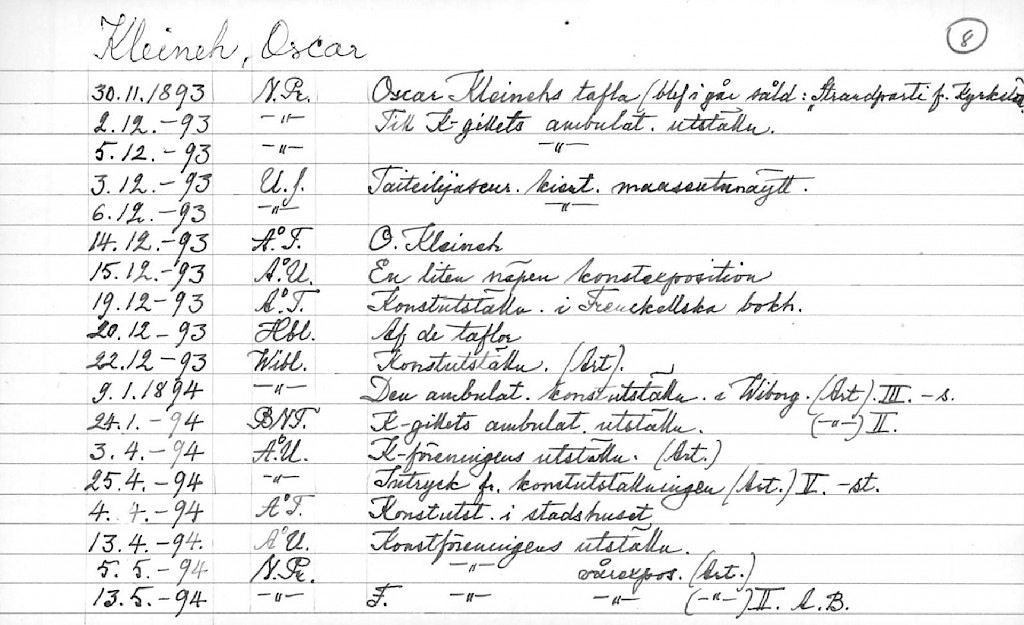 Kleineh, Oscar 8
30.11.1893 N.Pr. Oscar Kleinehs tafla (blef i går såld: "Strandparti f. Kyrkslä
2.12.-93 -"- Till K-gillets ambulat. utställn.
5.12.-93 -"- -"-
3.12.-93 U.S. Taiteilijaseur. kiert. maaseutunäytt.
6.12.-93 -"- -"-
14.12.-93 Å.T. O. Kleineh
15.12.-93 Å.U. En liten näpen konstexposition
19.12-93 Å.T. Konstutställn. i Frenckellska bokh.
20.12-93 Hbl. Af de taflor
22.12-93 Wibl. Konstutställn. (Art).
9.1.1894 -"- Den ambulat. konstutställn. i Wiborg. (Art). III. -s.
24.1.-94 BNT. K-gillets ambulat. utställn. (-"-) II.
3.4.-94 Å.U. K-föreningens utställn. (Art.)
25.4.-94 -"- Intryck fr. konstutställningen (Art.) V. -st.
4.4.-94 Å.T. Konstutst. i stadshuset
13.4.-94. Å.U. Konstföreningens utställn.
5.5.-94 N.Pr. -"- vårexpos. (Art.)
13.5.-94 -"- F. -"- -"- (-"-) II. A.B.